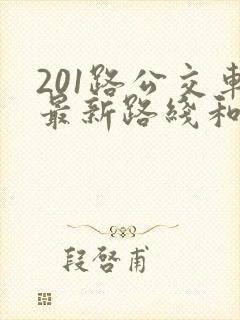 201路公交車
最新路綫和
段啓甫